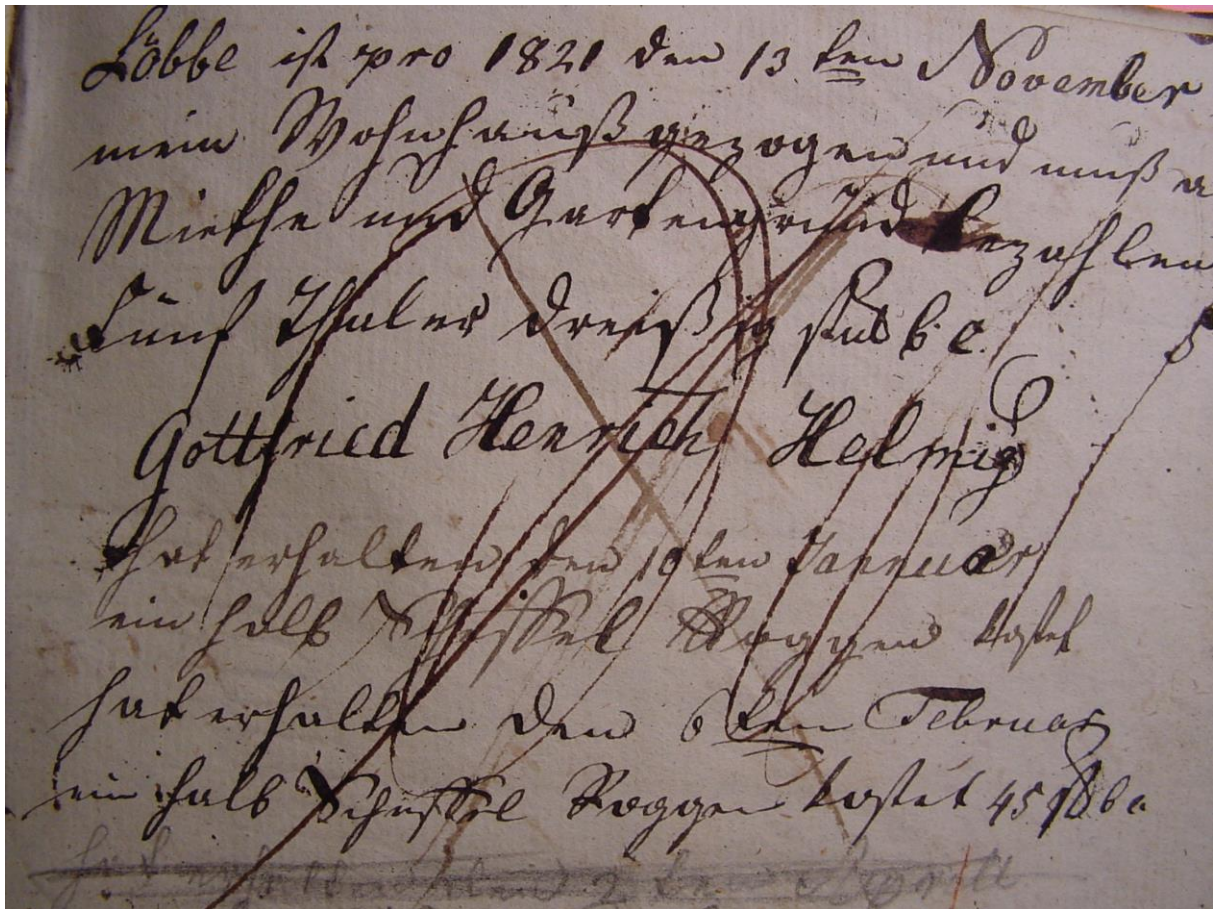 Löbbe ist pro 1821 den 13ten November
mein Wohnhauß gezogen und muß a
Miethe und Gartengrund bezahlen
fünf Thaler dreißig stüb
Gottfried Henrich Helmig
hat erhalten den 10ten Januar
ein halb Scheffel Roggen kostet
hat erhalten den 6ten Februar
ein halb Scheffel Roggen kostet 45 stb
hat erhalten den 2ten April